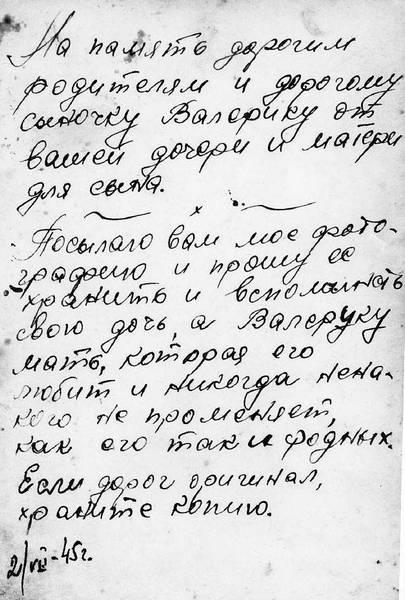 На память дорогим
родителям и дорогому
сыночку Валерику от
вашей дочери и матери
для сына.
Посылаю вам мое фото-
графию и прошу ее
хранить и вспоминать
свою дочь, а Валеруку
мать, которая его
любит и никогда нена-
кого не променяет,
как его так и родных.
Если дорог оригинал,
храните копию.
2/VII-45г.